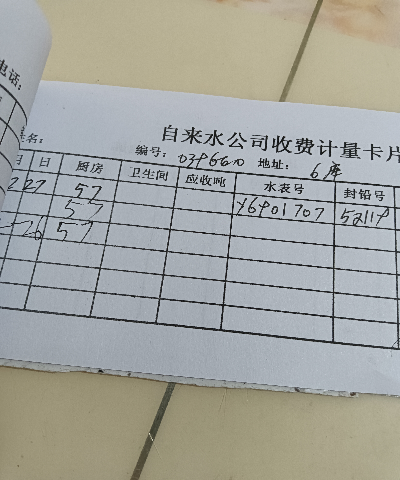 电话:
自来水公司收费计量卡片
名: 编号: 0396610 地址: 6库
月 日 厨房 卫生间 应收吨 水表号 封铅号
27 57 Y6901707 52119
57
26 57